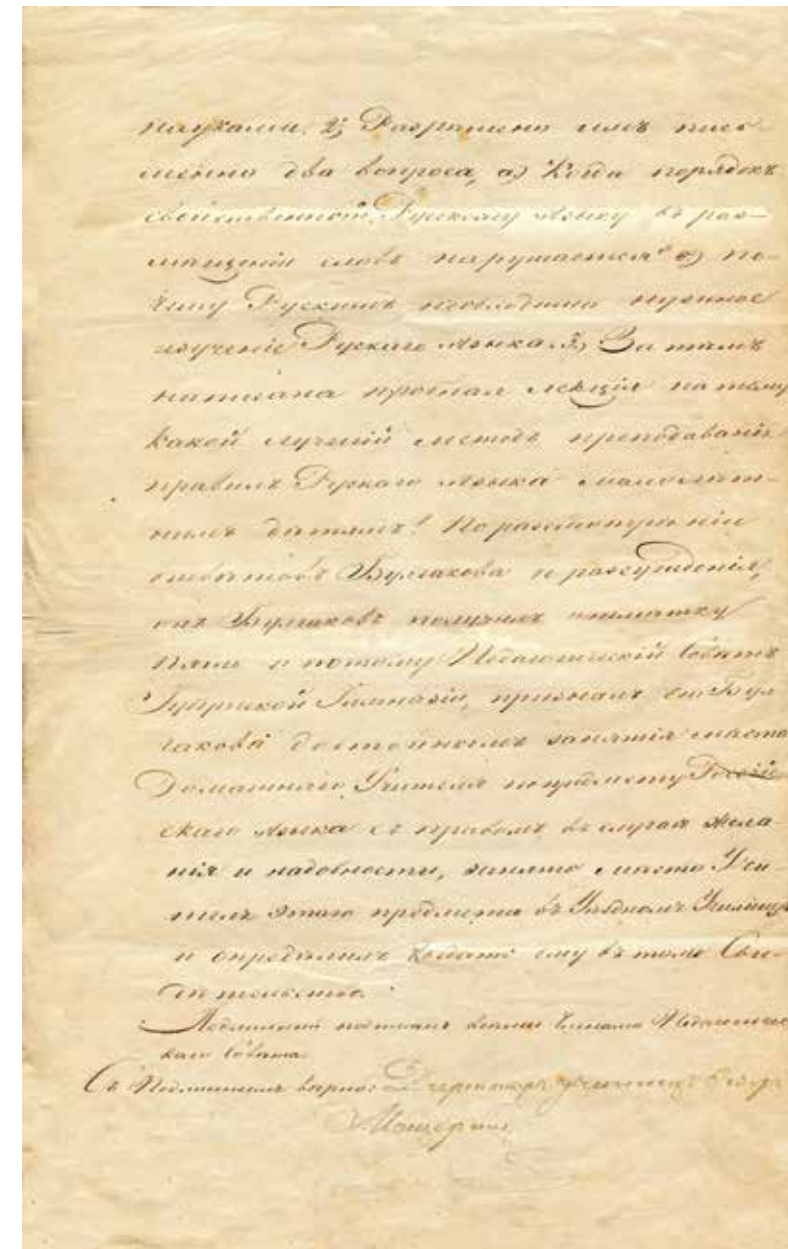 науками. 2; Разрѣшено имъ пись-
менно два вопроса, а) Когда порядокъ
свойственный Русскому языку въ раз-
мѣщеніи словъ нарушается? б) по-
чему Рускимъ необходимо нужное
изученіе Рускаго языка. 3; За тѣмъ
написана пробная лекція на тему
какой лучшій методъ преподаванія
правилъ Рускаго языка малолѣт-
нимъ дѣтямъ? По разсмотрѣніи
отвѣтовъ Булгакова и разсужденія,
онъ Булгаковъ получилъ отмѣтку
пять и потому Педагогическій Совѣтъ
Гимназіи, призналъ его Бул-
гакова достойнымъ занятія мѣста
Домашняго Учителя по предмету Россій-
скаго языка съ правомъ въ случаѣ жела-
нія и надобности, занять мѣсто Учи-
теля этаго предмета въ Уѣздномъ Училищѣ
и опредѣлилъ выдать ему въ томъ Сви-
дѣтельство.
Подлинный подписанъ всѣми Членами Педагогичес-
каго Совѣта.
Съ Подлиннымъ вѣрно: Директоръ Училищъ